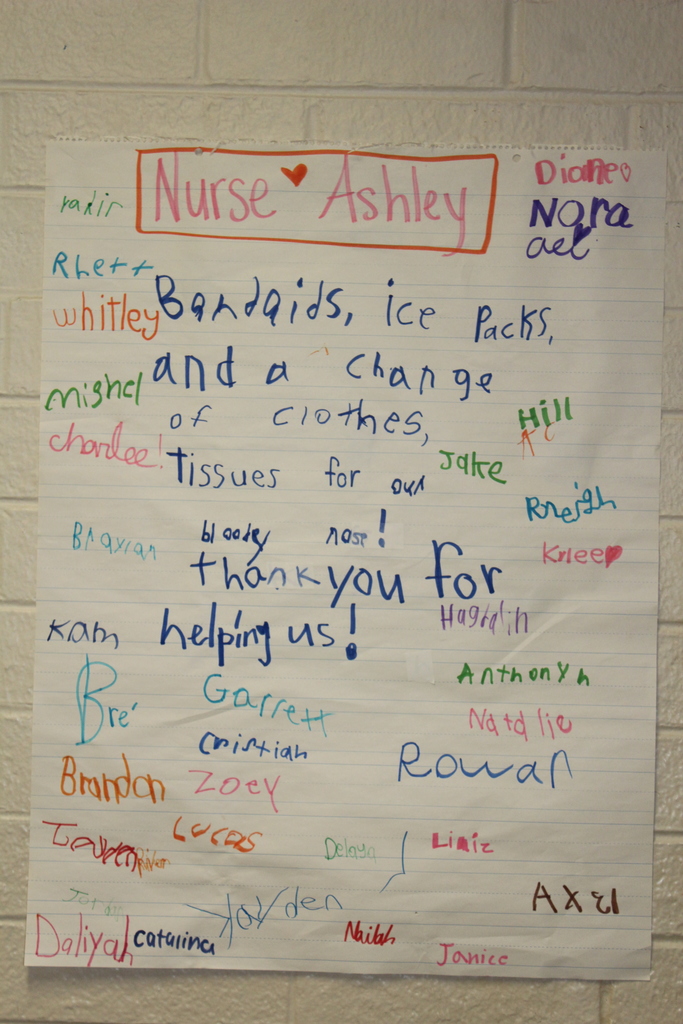 Nurse Ashley
Diane
Nora
ael
Rhett
whitley
Bandaids, ice Packs,
and a change
mishel
of clothes,
Hill
charlee!
tissues for our
Jake
bloody nose!
thank you for
Kam
helping us!
Anthony h
Bre'
Garrett
Natalie
Cristian
Rowan
Brandon
Zoey
Lucas
Delaya
Axel
Jayden
Daliyah
Catarina
Nailah
Janice